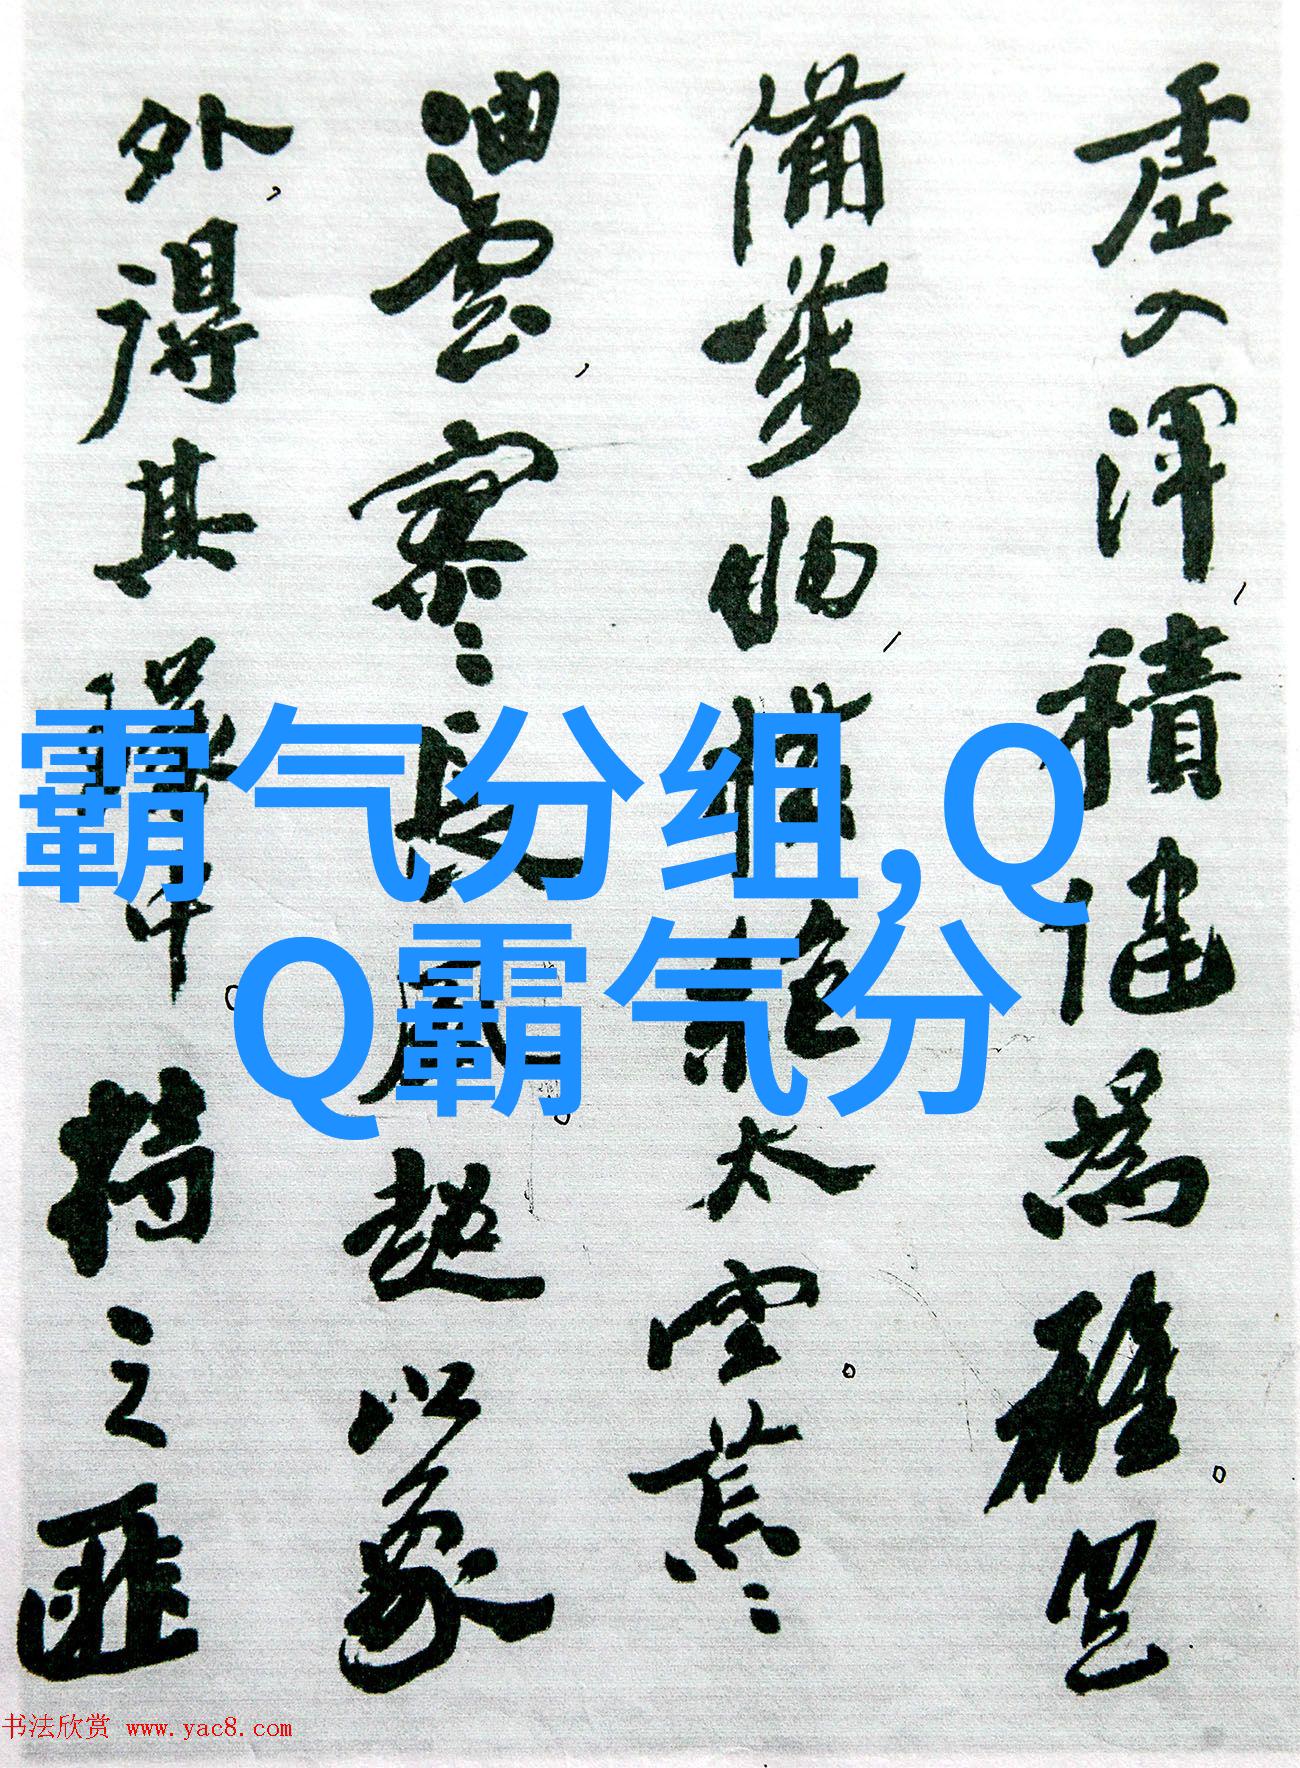 虛入渾，積健為雄。具
備萬物，橫絕太空。荒〻
油雲，寥〻長風。超以象
外，得其環中。持之匪
霸气分组,Q
Q霸气分
书法欣赏 www.yac8.com